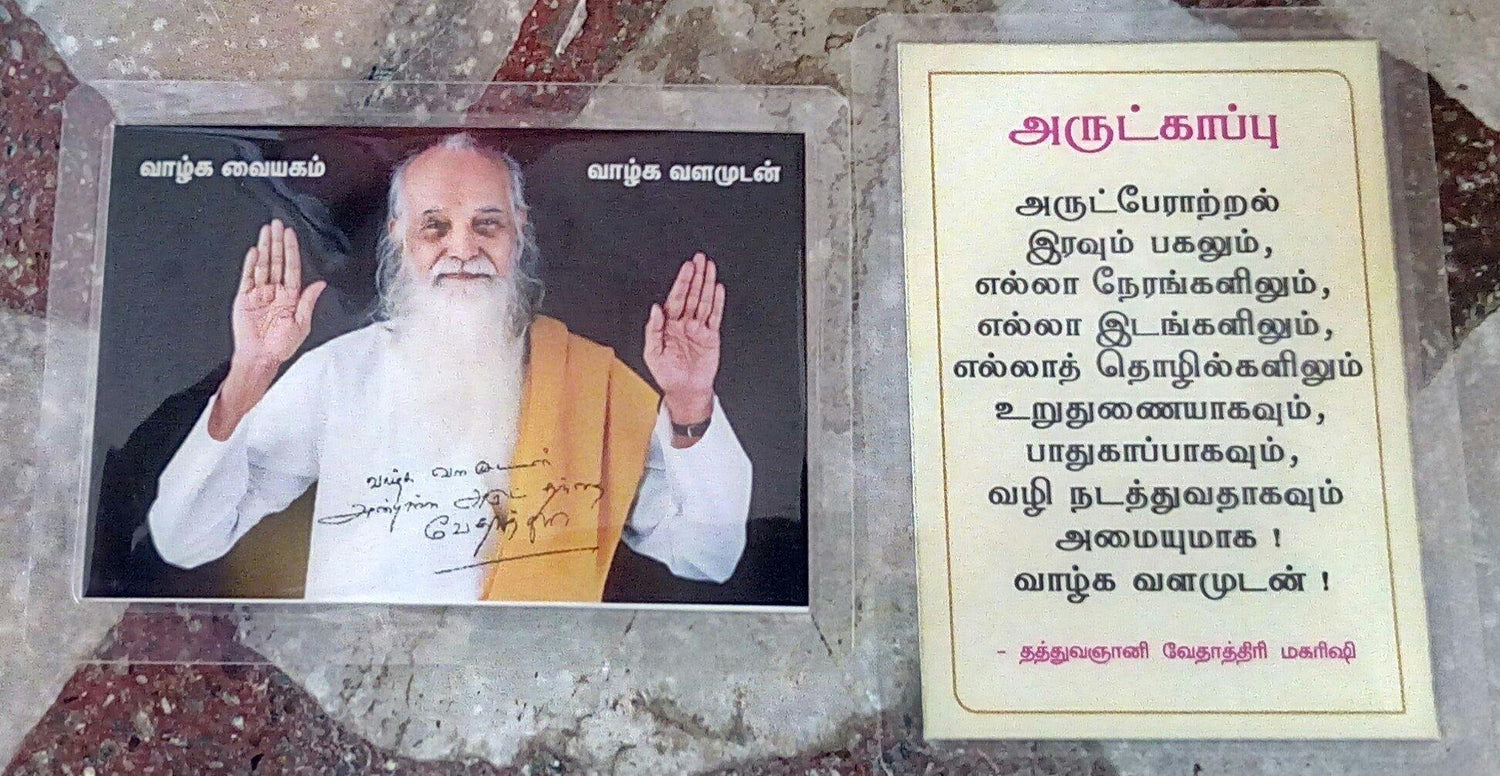 வாழ்க வையகம்
வாழ்க வளமுடன்
வாழ்க வளமுடன்
அன்புள்ள அருட் தந்தை
வேதாத்திரி
அருட்காப்பு
அருட்பேராற்றல்
இரவும் பகலும்,
எல்லா நேரங்களிலும்,
எல்லா இடங்களிலும்,
எல்லாத் தொழில்களிலும்
உறுதுணையாகவும்,
பாதுகாப்பாகவும்,
வழி நடத்துவதாகவும்
அமையுமாக !
வாழ்க வளமுடன் !
- தத்துவஞானி வேதாத்திரி மகரிஷி